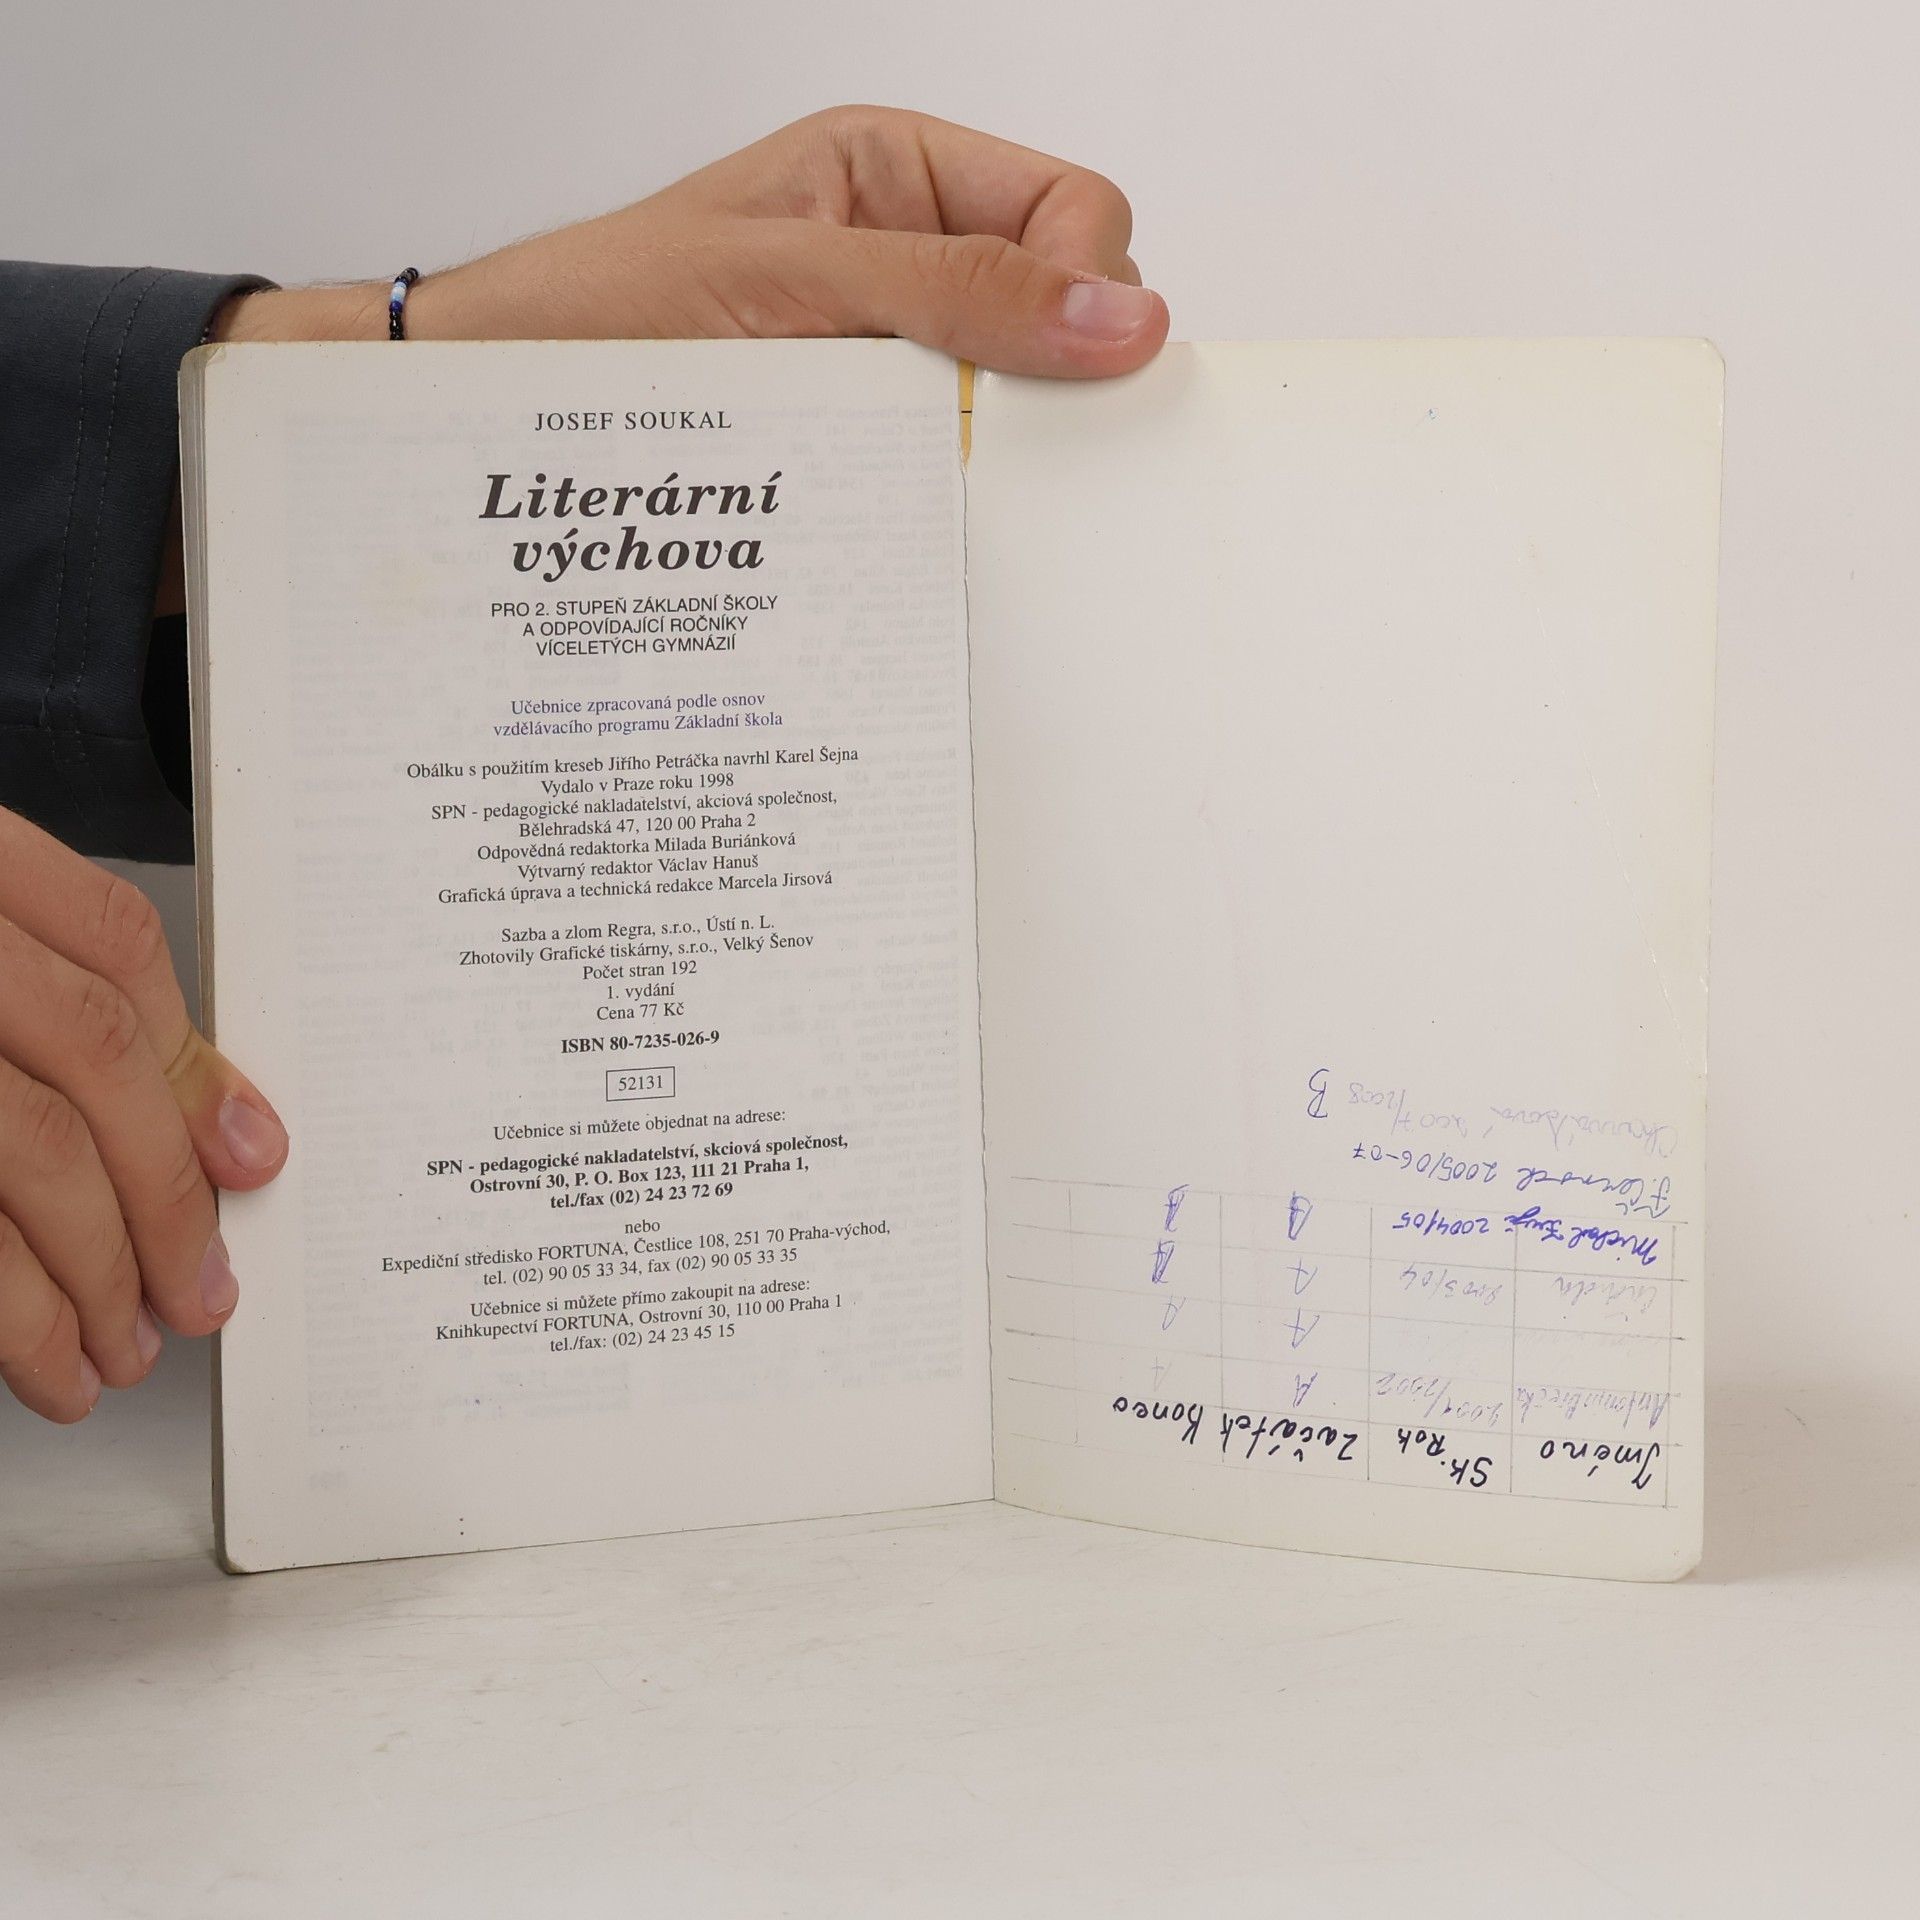 JOSEF SOUKAL
Literární
výchova
PRO 2. STUPEŇ ZÁKLADNÍ ŠKOLY
A ODPOVÍDAJÍCÍ ROČNÍKY
VÍCELETÝCH GYMNÁZIÍ
Učebnice zpracovaná podle osnov
vzdělávacího programu Základní škola
Obálku s použitím kreseb Jiřího Petráčka navrhl Karel Šejna
Vydalo v Praze roku 1998
SPN - pedagogické nakladatelství, akciová společnost,
Bělehradská 47, 120 00 Praha 2
Odpovědná redaktorka Milada Buriánková
Výtvarný redaktor Václav Hanuš
Grafická úprava a technická redakce Marcela Jirsová
Sazba a zlom Regra, s.r.o., Ústí n. L.
Zhotovily Grafické tiskárny, s.r.o., Velký Šenov
Počet stran 192
1. vydání
Cena 77 Kč
ISBN 80-7235-026-9
52131
Učebnice si můžete objednat na adrese:
SPN - pedagogické nakladatelství, skciová společnost,
Ostrovní 30, P. O. Box 123, 111 21 Praha 1,
tel./fax (02) 24 23 72 69
nebo
Expediční středisko FORTUNA, Čestlice 108, 251 70 Praha-východ,
tel. (02) 90 05 33 34, fax (02) 90 05 33 35
Učebnice si můžete přímo zakoupit na adrese:
Knihkupectví FORTUNA, Ostrovní 30, 110 00 Praha 1
tel./fax: (02) 24 23 45 15
Jméno Šk. Rok Začátek Konec
2001/2002 A A
A A
2003/04 A
Michal 2004/05 A
2005/06-07
2007/2008 B